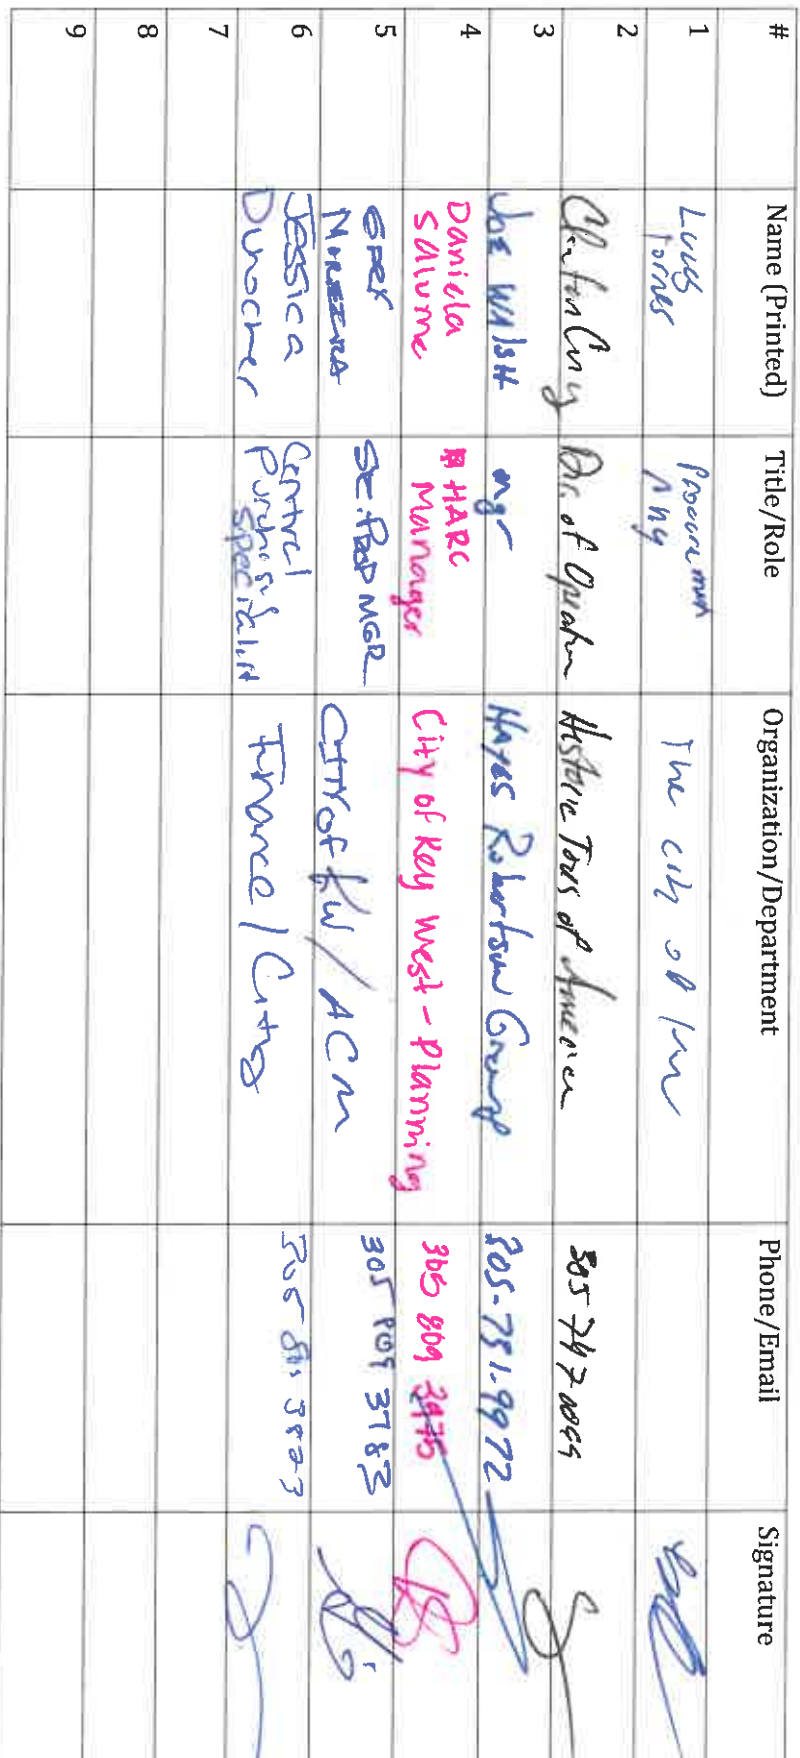 # Name (Printed) Title/Role Organization/Department Phone/Email Signature
1 Lucas Torres Procurement Mng The city of KW
2 Clinton Curry Dir. of Operation Historic Tours of America 305 747
3 Joe Walsh mgr Hayes Robertson Group 305-731-9972
4 Daniela Salume HARC Manager City of Key West - Planning 305 809 3975
5 Sr. Prop MGR City of KW / ACM 305 809 3783
6 Jessica Durocher Central Purchasing Specialist Finance / City 305
7
8
9